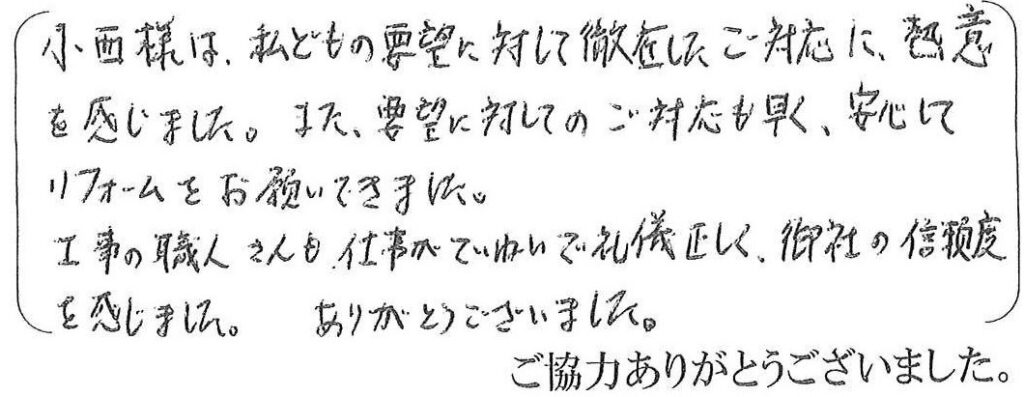 小西様は、私どもの要望に対して徹底したご対応に、熱意
を感じました。また、要望に対してのご対応も早く、安心して
リフォームをお願いできました。
工事の職人さんも、仕事がていねいで礼儀正しく、御社の信頼度
を感じました。 ありがとうございました。
ご協力ありがとうございました。